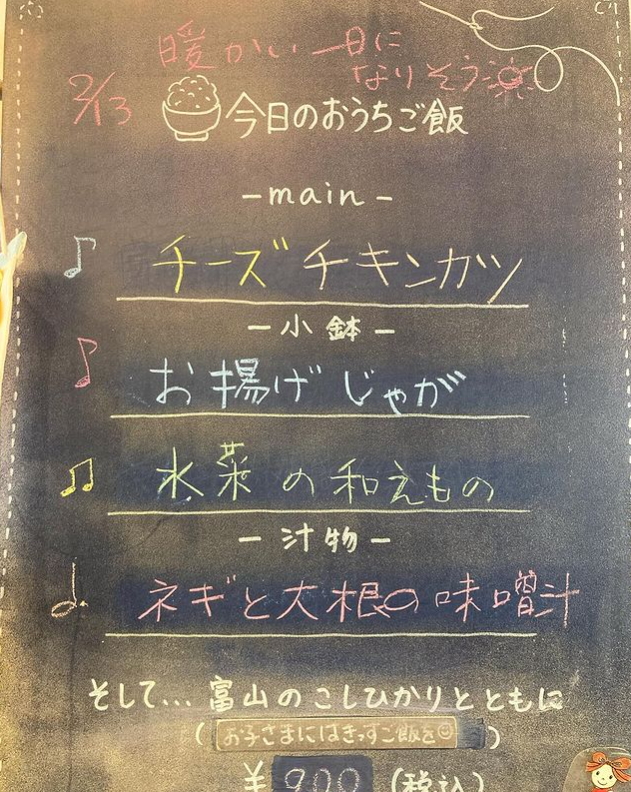 暖かい一日に
なりそう
2/13
今日のおうちご飯
-main-
チーズチキンカツ
-小鉢-
お揚げじゃが
水菜の和えもの
-汁物-
ネギと大根の味噌汁
そして...富山のこしひかりとともに
(お子さまにはきっずご飯を☺)
¥900(税込)